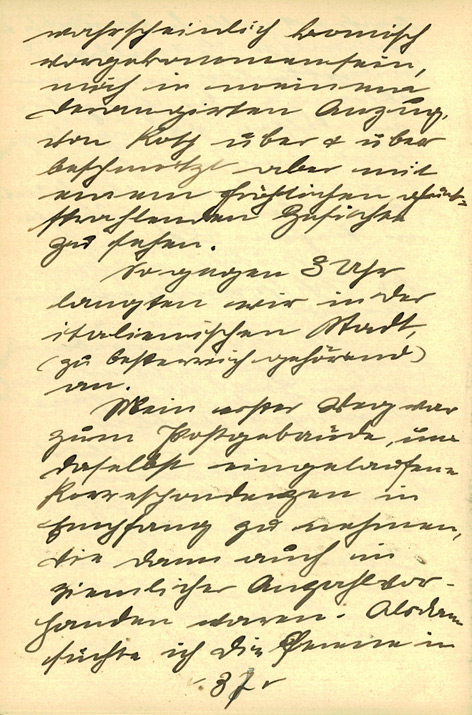 wahrscheinlich komisch
vorgekommen sein,
mich in meinem
derangirten Anzug,
von Koth über & über
beschmutzt aber mit
einem fröhlichen glück-
strahlenden Gesichte
zu sehen.
So gegen 3 Uhr
langten wir in der
italienischen Stadt,
(zu Oesterreich gehörend)
an.
Mein erster Weg war
zum Postgebäude, um
daselbst eingelaufene
Korrespondenzen in
Empfang zu nehmen,
die dann auch in
ziemlicher Anzahl vor-
handen waren. Alsdann
suchte ich die Penne in